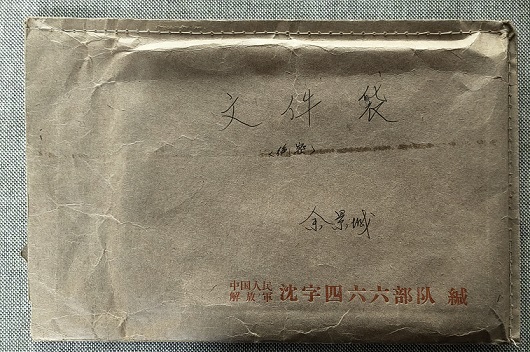 文件袋
余景城
中国人民
解放軍 沈字四六六部队 緘